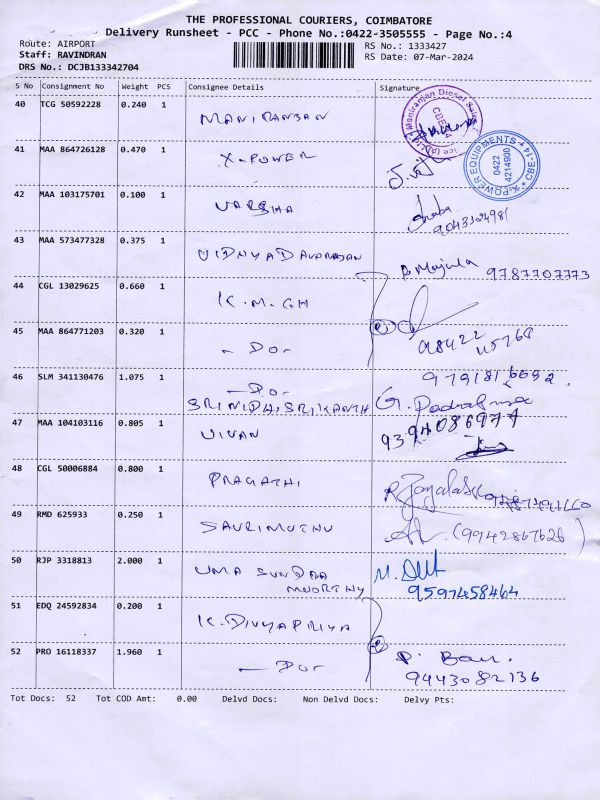 THE PROFESSIONAL COURIERS, COIMBATORE
Delivery Runsheet - PCC - Phone No.:0422-3505555 - Page No.:4
Route: AIRPORT RS No.: 1333427
Staff: RAVINDRAN RS Date: 07-Mar-2024
DRS No.: DCJB133342704
S No Consignment No Weight PCS Consignee Details Signature
40 TCG 50592228 0.240 1 MANIRANJAN
Maniranjan Diesel Sales
41 MAA 864726128 0.470 1 X-POWER
X-POWER EQUIPMENTS * CBE-14 *
0422
4214900
42 MAA 103175701 0.100 1 VARSHA
9043324981
43 MAA 573477328 0.375 1 9787707773
44 CGL 13029625 0.660 1 K.M.CH
98422
45 MAA 864771203 0.320 1 - Do -
46 SLM 341130476 1.075 1 - Do -
SRINIDHI SRIKANTH
47 MAA 104103116 0.805 1 VIVAN
9394086977
48 CGL 50006884 0.800 1 PRAGATHI
49 RMD 625933 0.250 1 SAVRIMUTHU (9942867626)
50 RJP 3318813 2.000 1 UMA SUNDRA
MOORTHY 9597458464
51 EDQ 24592834 0.200 1 K. DIVYAPRIYA
52 PRO 16118337 1.960 1 - Do -
9443082136
Tot Docs: 52 Tot COD Amt: 0.00 Delvd Docs: Non Delvd Docs: Delvy Pts: